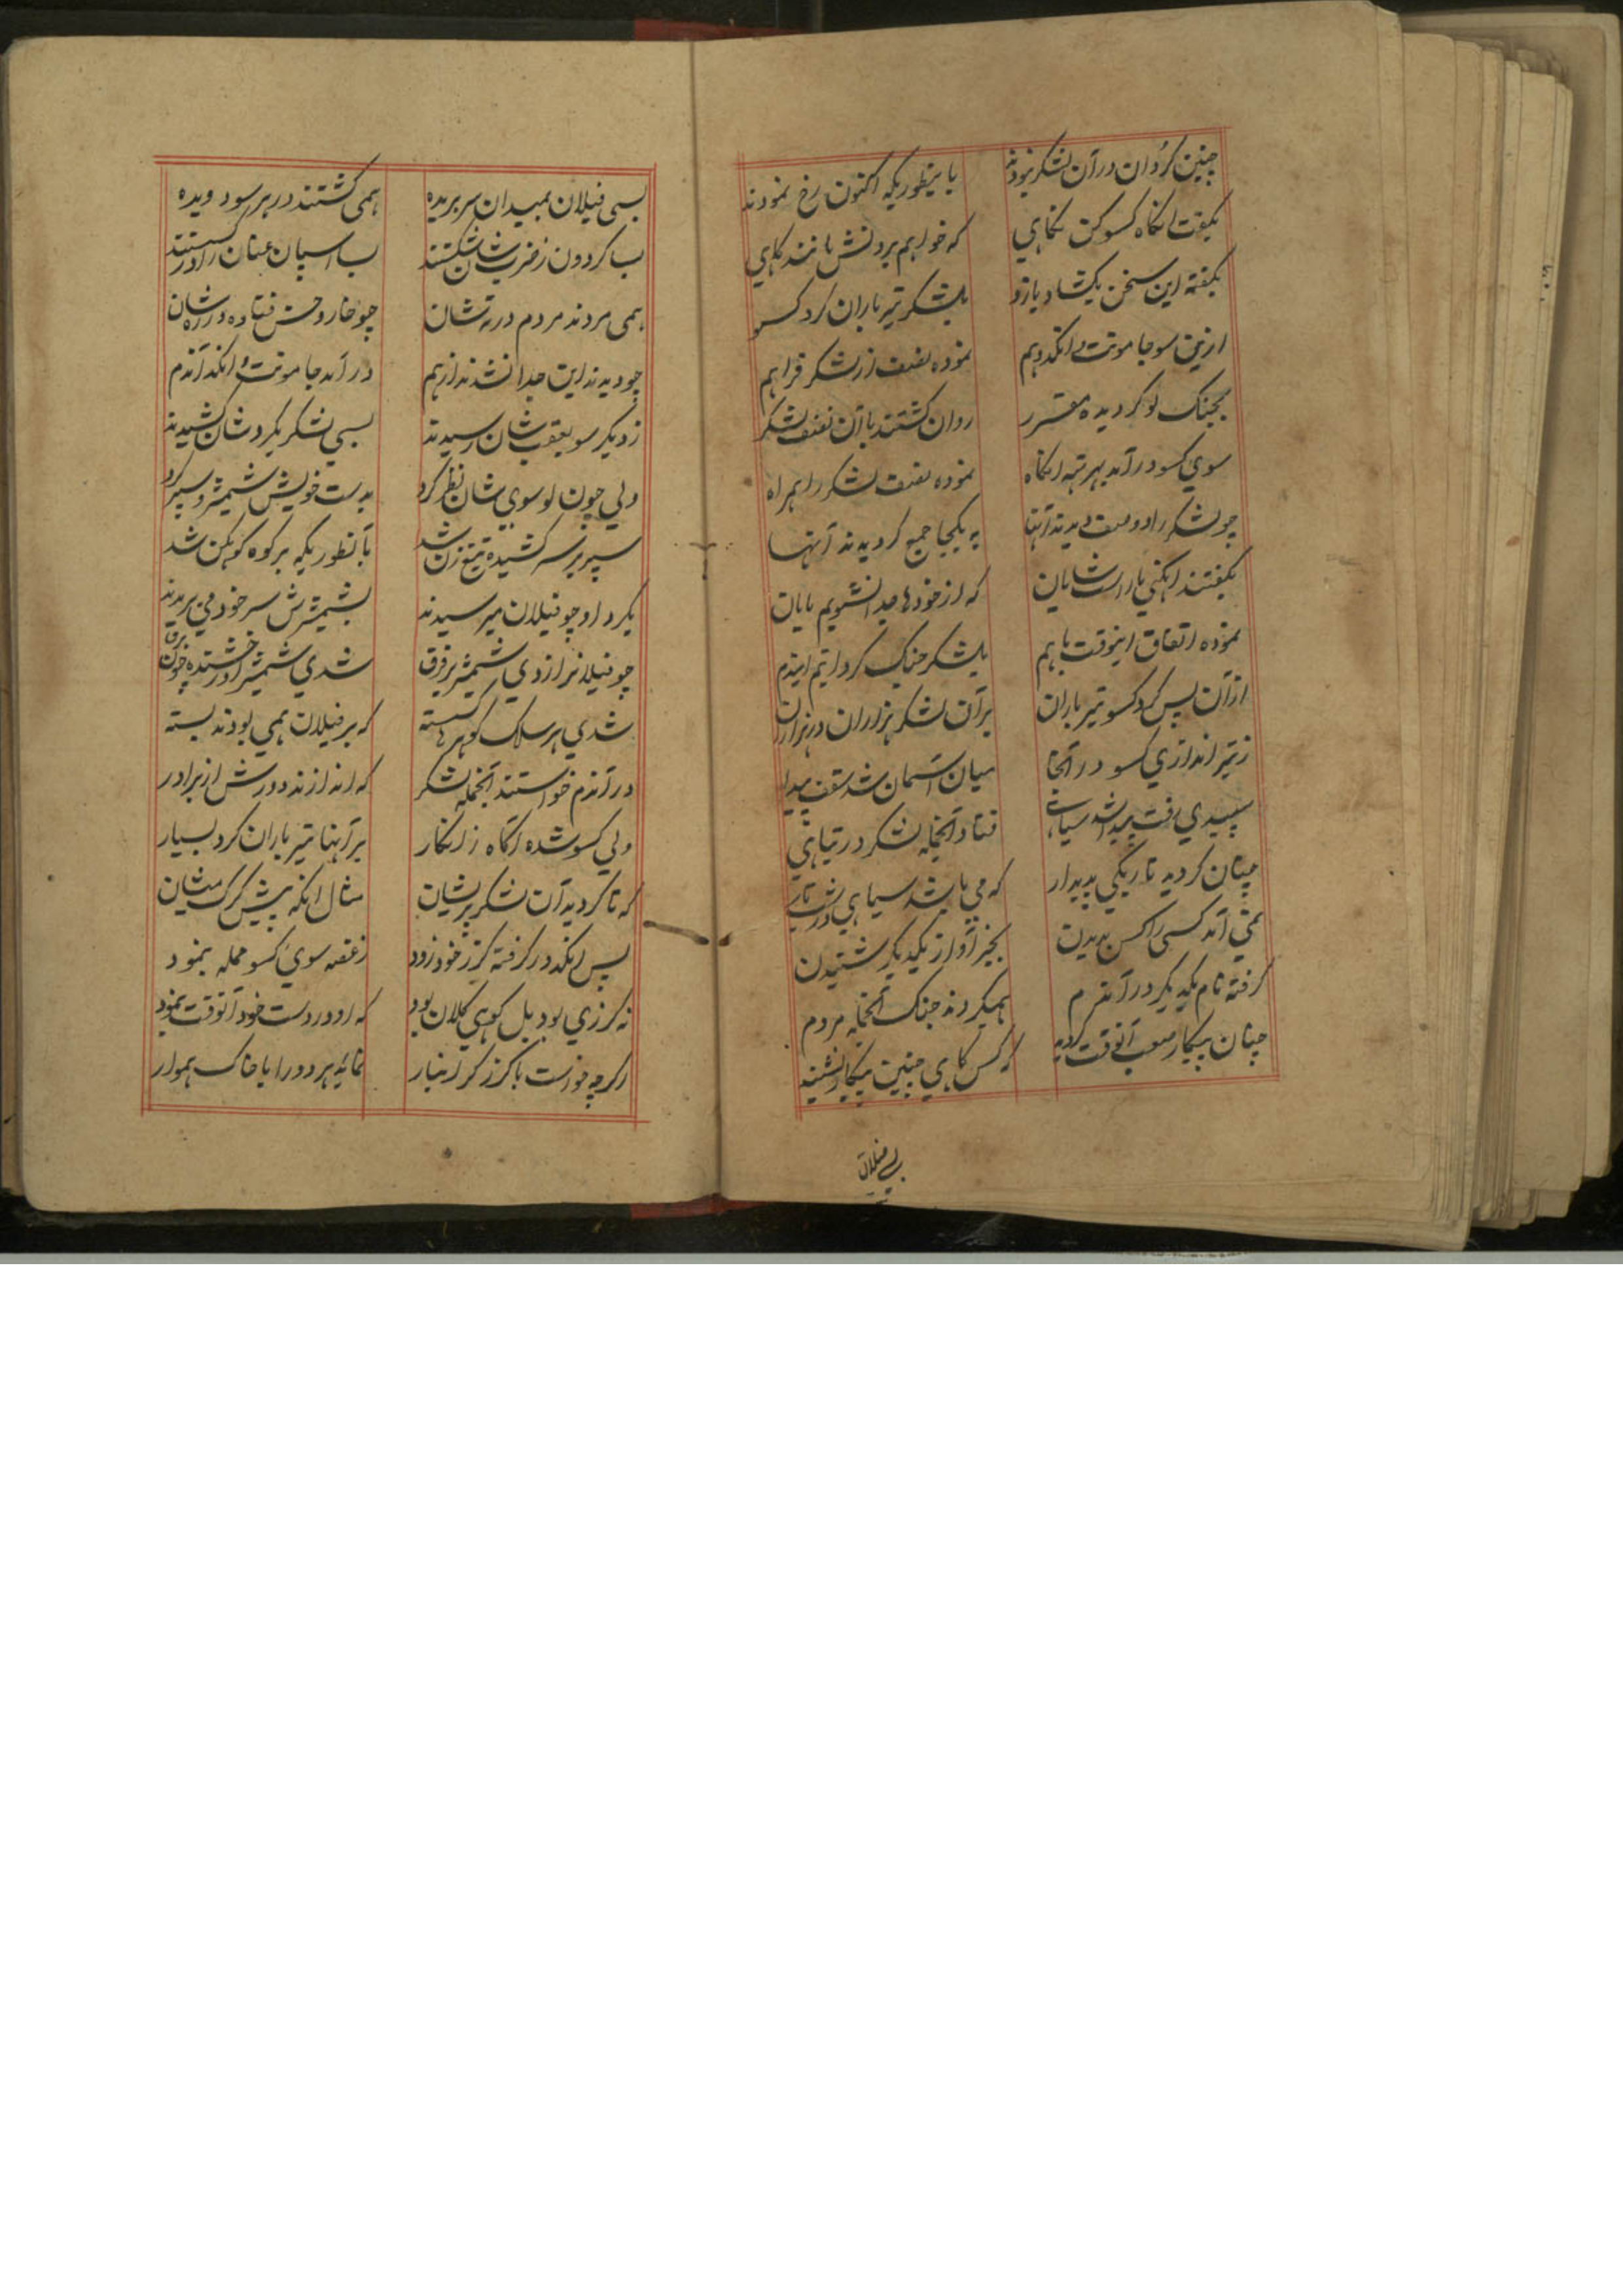 چنین گردان در آن لشکر نمودند بایطوریکه اکنون رخ نمودند
بگفت انگاه کسو کن نگاهی که خواهم بردنش مانند کاهی
بگفته این سخن بگشاد بازو بلشکر تیر باران کرد کسو
ازین سو جامونت و انگد و هم نموده نصف از لشکر فراهم
بجنگ لو گردیده مقرر روان گشتند با آن نصف لشکر
سوی کسو در آمد بهر انگاه نموده نصف لشکر را همراه
چو لشکر را دو صف دیدند آنها به یکجا جمع گردیدند آنها
بگفتند که از خودها جدا نشویم
نموده اتفاق اینوقت باهم بلشکر جنگ کردانیم ایندم
از آن پس کرد کسو تیر باران بر آن لشکر هزاران در هزاران
ز تیر اندازی کسو در آنجا میان آسمان شد سقف پیدا
سپیدی رفت پیدا شد سیاهی فتاد آنجمله لشکر در تباهی
چنان گردید تاریکی پدیدار که می باشد سیاهی در شب تار
نمی آمد کسی را کس بدیدن بجز آواز یکدیگر شنیدن
گرفته نام یکدیگر در آندم همیکردند جنگ آنجمله مردم
چنان پیکار صعب آنوقت گردید که کس گاهی چنین پیکار نشنید
بسی فیلان
بسی فیلان بمیدان سر بریده همی گشتند در هر سو دویده
بسا گردون ز ضرب شان شکستند بسا اسپان عنان را در گسستند
همی مردند مردم در ته شان چو خار و خس فتاده در ره شان
چو دیدند این جدا نشدند از هم در آمد جامونت و انگد آندم
ز دیگر سو بعقب شان رسیدند بسی لشکر بگرد شان کشیدند
ولی چون لو سوی شان نظر کرد بدست خویش شمشیر و سپر کرد
سپر بر سر کشیده تیغ زن شد بآنطوریکه بر کوه کوهکن شد
بگرد او چو فیلان میرسیدند بشمشیرش سر خود می بریدند
چو فیلانرا زدی شمشیر بر فرق شدی شمشیر او رخشنده چون برق
شدی هر سلک گوهرها گسسته که بر فیلان همی بودند بسته
در آندم خواستند آنجمله لشکر که اندازند دورش از برادر
ولی کسو شده آگاه ز انکار بر آنها تیر باران کرد بسیار
که تا گردید آن لشکر پریشان مثال انکه پیش گرگ میشان
پس انگد در گرفته گرز خود زود ز غصه سوی کسو حمله بنمود
نه گرزی بود بل کوهی کلان بود که او در دست خود آنوقت بنمود
اگرچه خواست با گرز گرانبار نماید هر دو را با خاک هموار